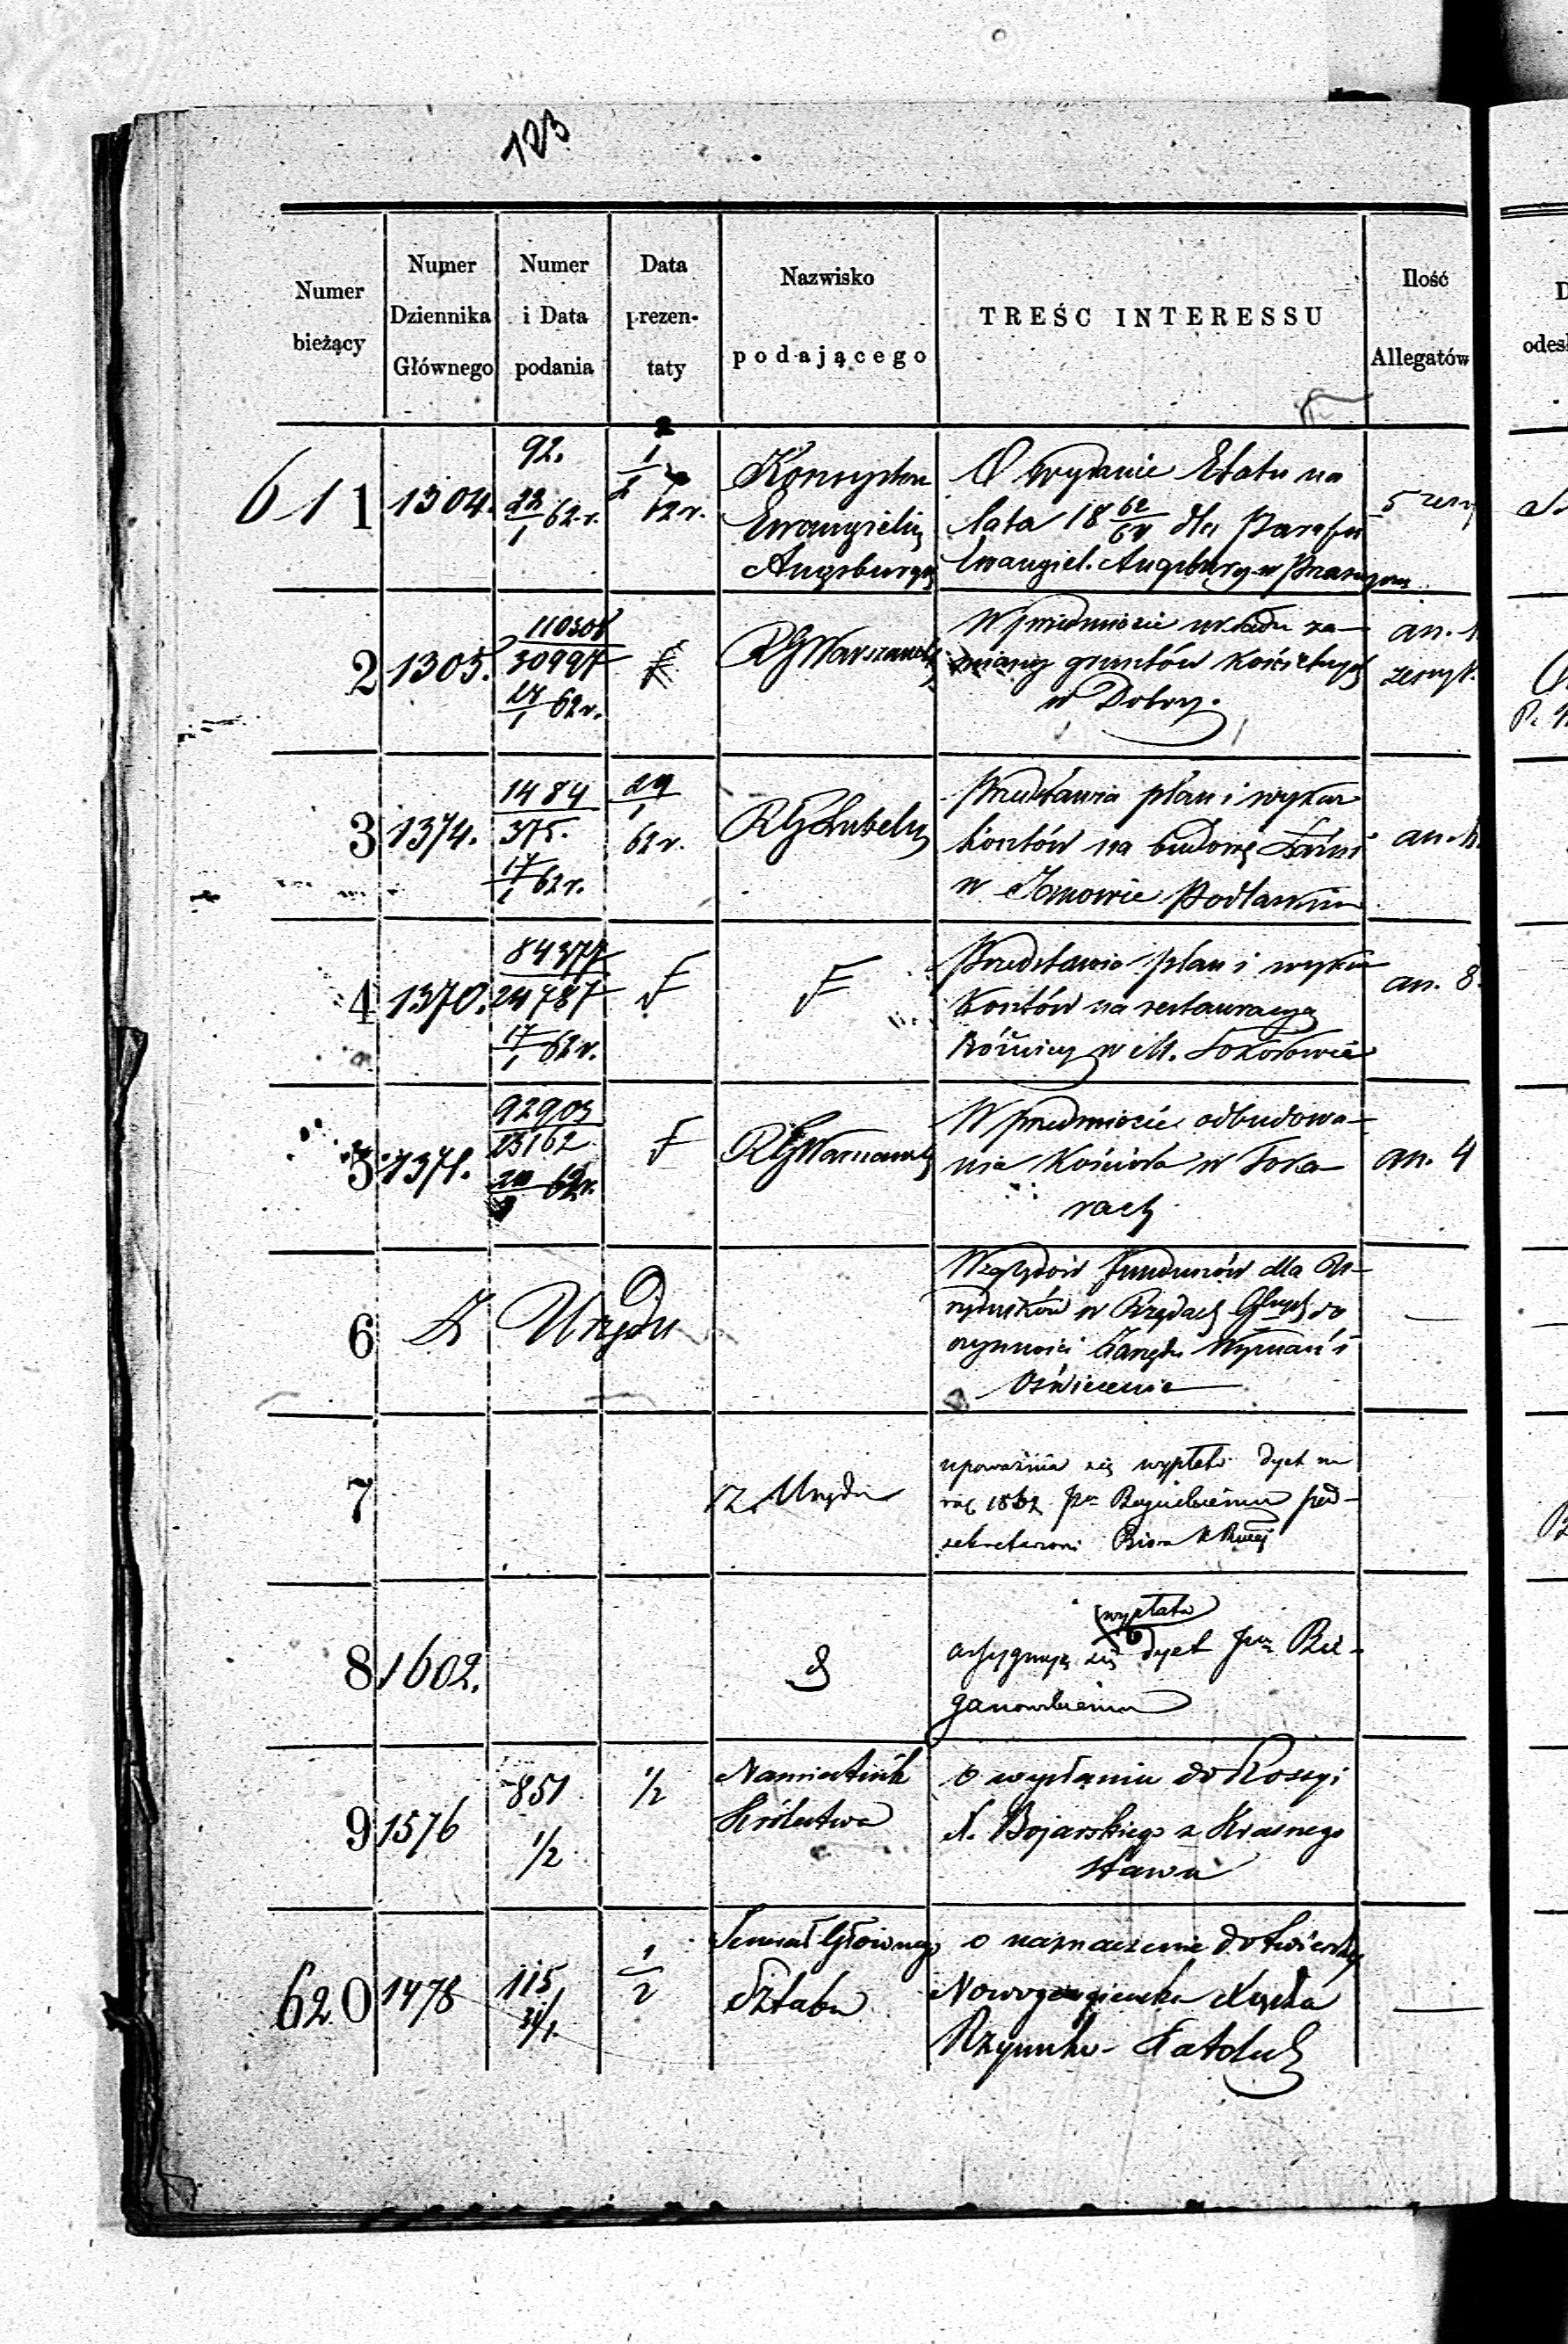 123
Numer bieżący
Numer Dziennika Głównego
Numer i Data podania
Data prezentaty
Nazwisko podającego
TREŚC INTERESSU
Ilość Allegatów
611
1304.
92.
22/1 62 r.
1/2 62 r.
Konsystor
Ewangielic
Augsburgs
O wydanie Etatu na
lata 18 62/67 dla Parafii
Ewangiel. Augsburg w
5
2
1305.
110308
30997
62 r.
RG Warszawski
W przedmiocie układu za-
miany gruntów Kościelnych
w Dobry.
an.
zeszyt.
3
1374.
1484
375.
17/1 62 r.
29/1
62 r.
RG Lubelski
Przedstawia plan i wykaz
kosztów na budowę Łaźni
w Janowie Podlaskim
an.
4
1370.
84377
24787
17/1 62 r.
Przedstawia plan i wykaz
Kosztów na restauracyą
Bóżnicy w M. Sokołowie
an. 8
5
1371.
92903
23162
62 r.
RG Warszawski
W przedmiocie odbudowa-
nia Kościoła w
rach
an. 4
6
Z Urzędu
Względów Funduszów dla U-
rzędników w Rządach Gbnych do
czynności Zarządu Wyznań i
Oświecenia
7
z Urzędu
upoważnia się wypłata dyet na
rzecz 1862 pod-
sekretarzowi Biura
8
1602.
wypłata
assygnuje się dyet
ganowskiemu
9
1576
851
1/2
1/2
Namiestnik
Królestwa
o wysłaniu do Rossyi
X. Bojarskiego z Krasnego
stawu
620
1478
115
31/1
1/2
Głównego
Sztabu
o naznaczenie do twierdzy
Nowogeorgiewska Księdza
Rzymsko-Katolic